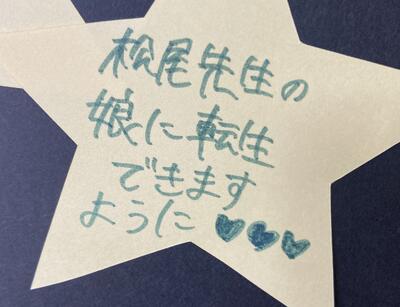 松尾先生の
娘に転生
できます
ように♥♥♥